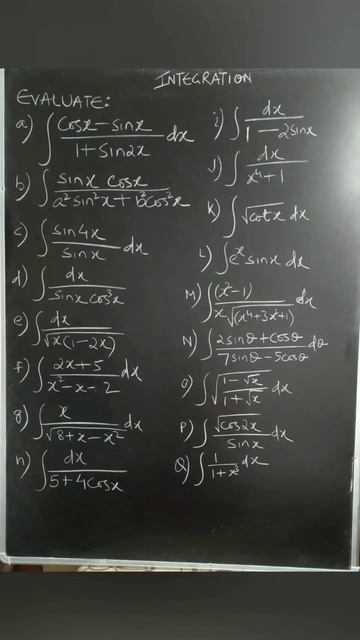 INTEGRATION
EVALUATE:
a) ∫ (cosx − sinx)/(1 + sin2x) dx
b) ∫ (sinx cosx)/(a² sin²x + b² cos²x
c) ∫ (sin4x)/(sinx) dx
d) ∫ dx/(sinx cos³x)
e) ∫ dx/√x(1 − 2x)
f) ∫ (2x + 5)/(x² − x − 2) dx
g) ∫ x/√(8 + x − x²) dx
h) ∫ dx/(5 + 4cosx)
i) ∫ dx/(1 − 2sinx)
J) ∫ dx/(x⁴ + 1)
K) ∫ √cotx dx
L) ∫ eˣ sinx dx
M) ∫ (x² − 1)/(x √(x⁴ + 3x² + 1)) dx
N) ∫ (2sinθ + cosθ)/(7sinθ − 5cosθ) dθ
O) ∫ √((1 − √x)/(1 + √x)) dx
P) ∫ √cos2x/sinx dx
Q) ∫ 1/(1 + x) dx